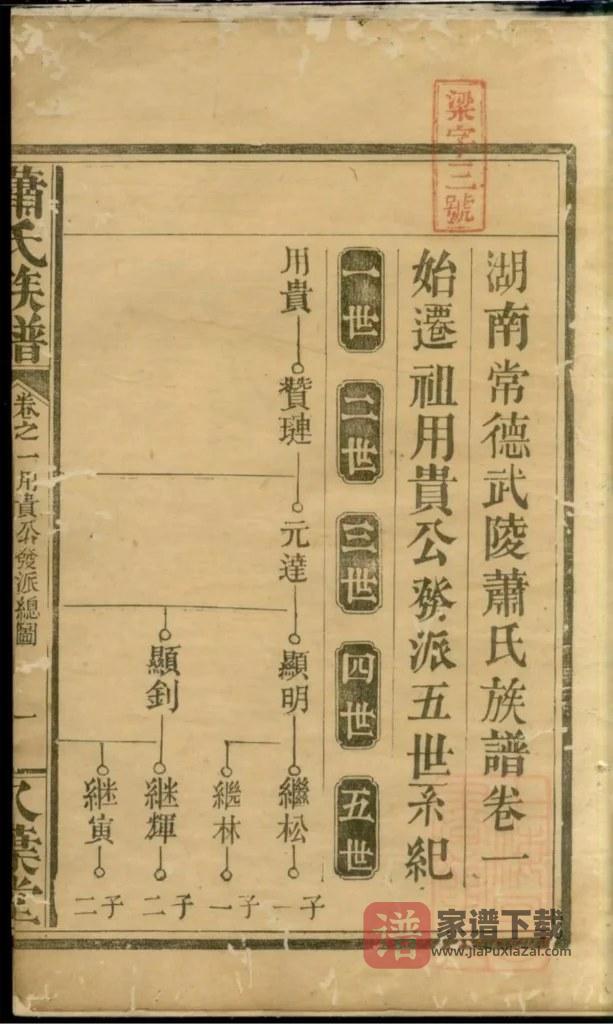 梁字三號
湖南常德武陵蕭氏族譜卷一
始遷祖用貴公發派五世系紀
一世
二世
三世
四世
五世
用貴
贊璉
元達
顯明
顯釗
繼松
繼林
継輝
継寅
子一
子一
子二
子二
蕭氏族譜
卷之一用貴公發派總圖
一
八葉堂
譜
家谱下载
www.jiaPuXiaZai.com